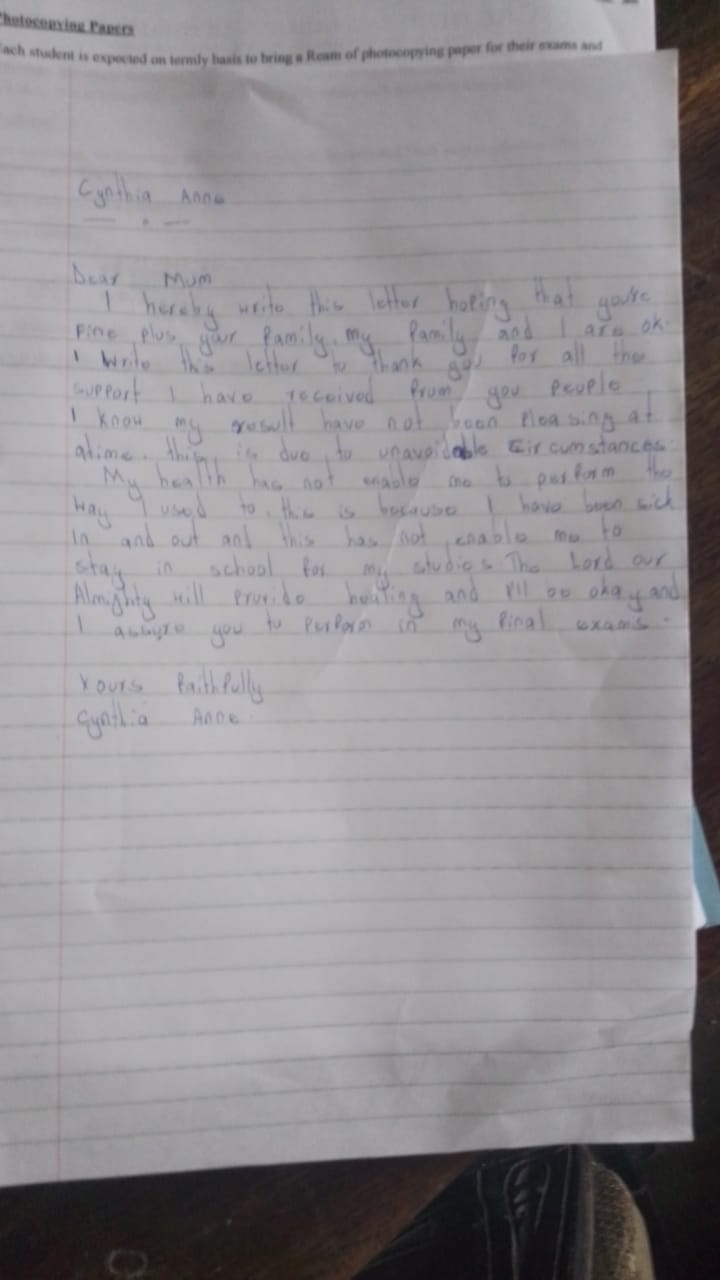 Photocopying Papers
Each student is expected on termly basis to bring a Ream of photocopying paper for their exams and
Cynthia Anne
Dear Mum
I hereby write this letter hoping that you're
Fine plus your family. my family and I are ok.
I write this letter to thank you for all the
support I have received from you people
I know my result have not been pleasing at
atime. this is due to unavoidable circumstances.
My health has not enable me to perform the
way I used to, this is because I have been sick
In and out and this has not enable me to
stay in school for my studies The Lord our
Almighty will provide healing and I'll be okay and
I assure you to perform in my final exams.
Yours faithfully
Cynthia Anne